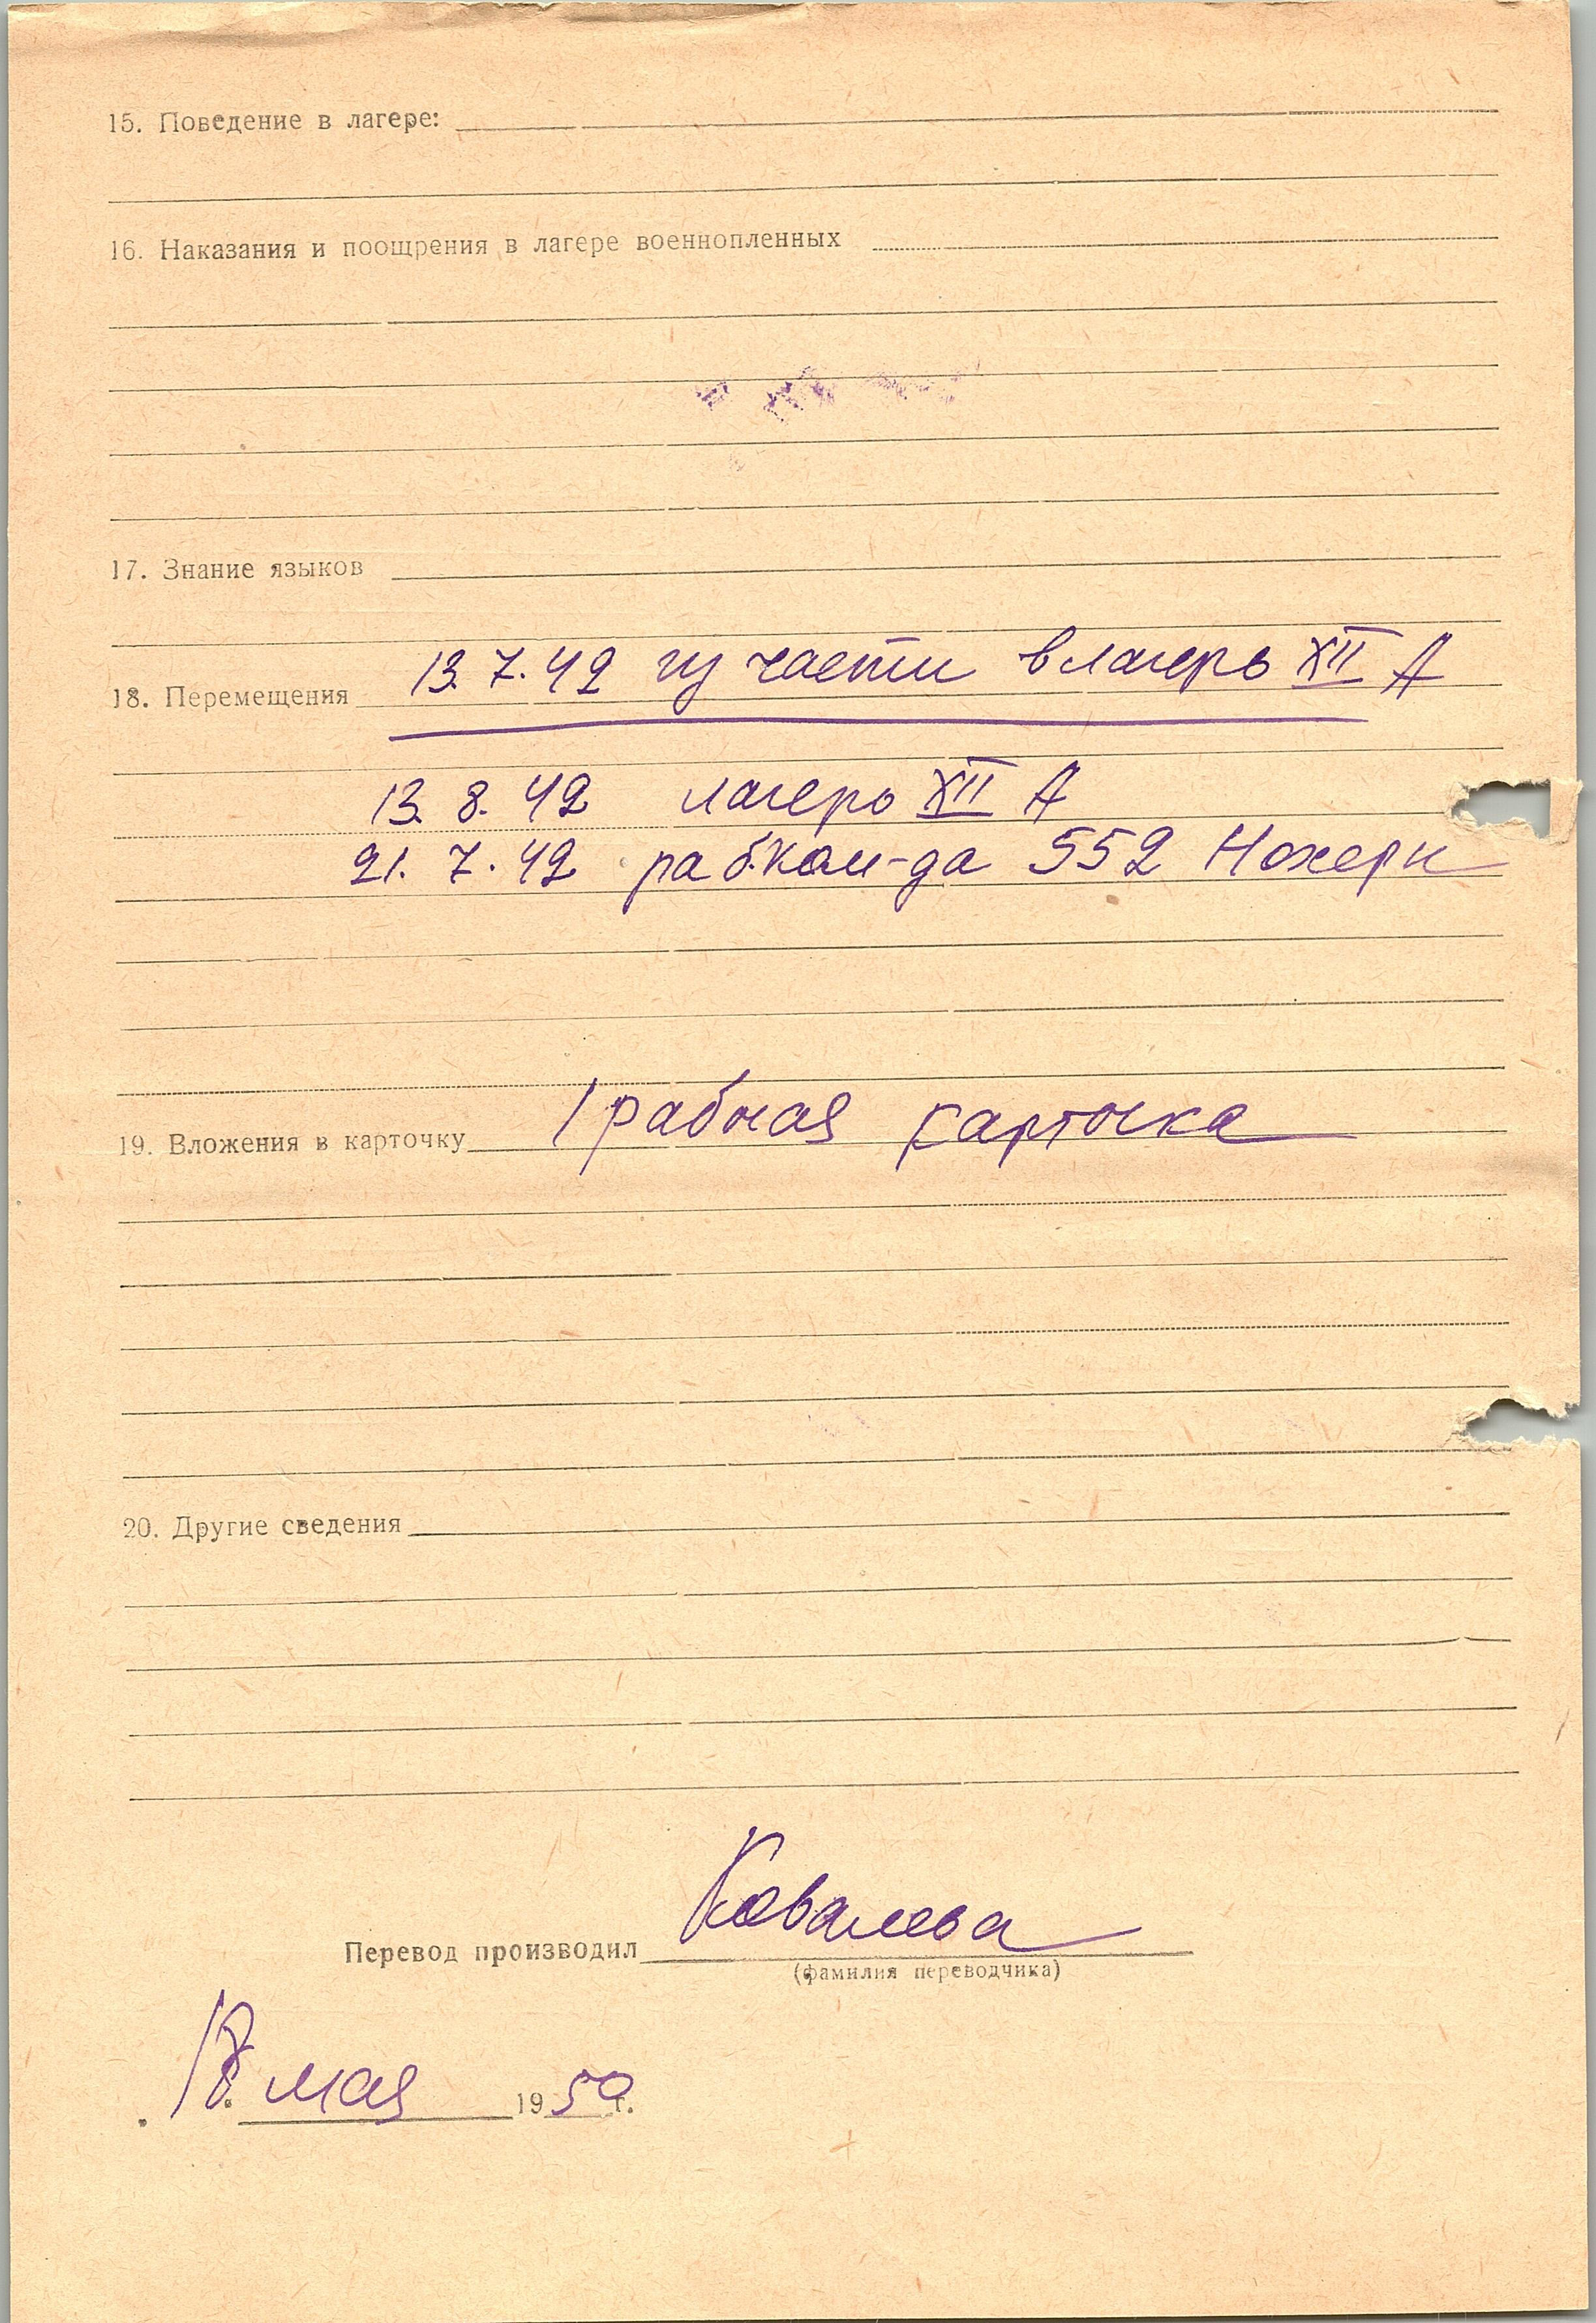 15. Поведение в лагере:
16. Наказания и поощрения в лагере военнопленных
17. Знание языков
18. Перемещения 13.7.42 из части в лагерь XII А
13.8.42 лагерь XII А
21.7.42 раб.ком-да 552
19. Вложения в карточку 1 рабочая карточка
20. Другие сведения
Перевод производил Ковалева
(фамилия переводчика)
мая 1950 г.